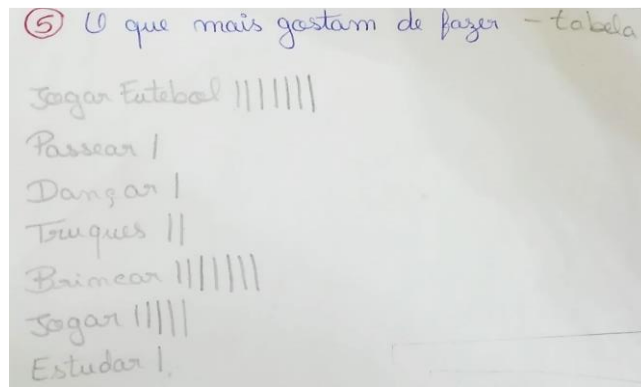 ⑤ O que mais gostam de fazer - tabela
Jogar Futebol ||||||||
Passear |
Dançar |
Truques ||
Brincar ||||||||
Jogar |||||
Estudar |.